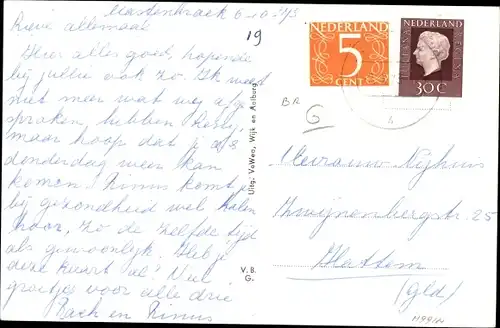 6-10-'73
19
Lieve allemaal
Hier alles goed, hopende
bij jullie ook zo. Ik weet
niet meer wat wij afge
sproken hebben
maar hoop dat je a.s.
donderdag weer kan
komen! Rinus komt je
bij gezondheid wel halen
hoor, zo de zelfde tijd
als gewoonlijk. Heb je
deze kaart al? Veel
groetjes voor alle drie
en Rinus
Uitg. V. Weel, Wijk en Aalburg
V. B.
G.
NEDERLAND
5
CENT
NEDERLAND
JULIANA REGINA
30 C
BR
G
Mevrouw Nijhuis
Zwijnenbergstr. 25
Hattem
(Gld)